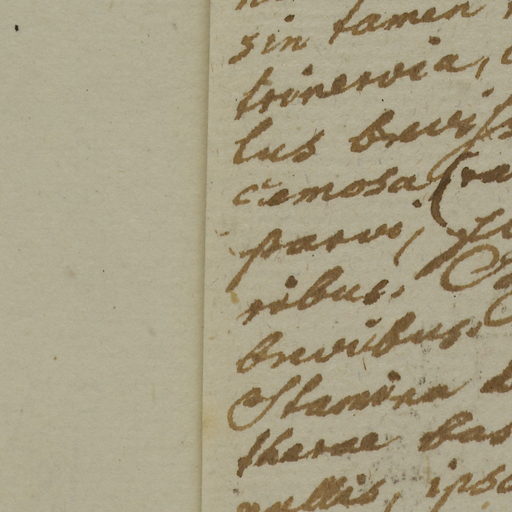 sin tamen
trinervia,
lus breviss
cemosa (ra
parvi,
ribus.
brevibus.
Stamina
therae bas
vallis, ipso